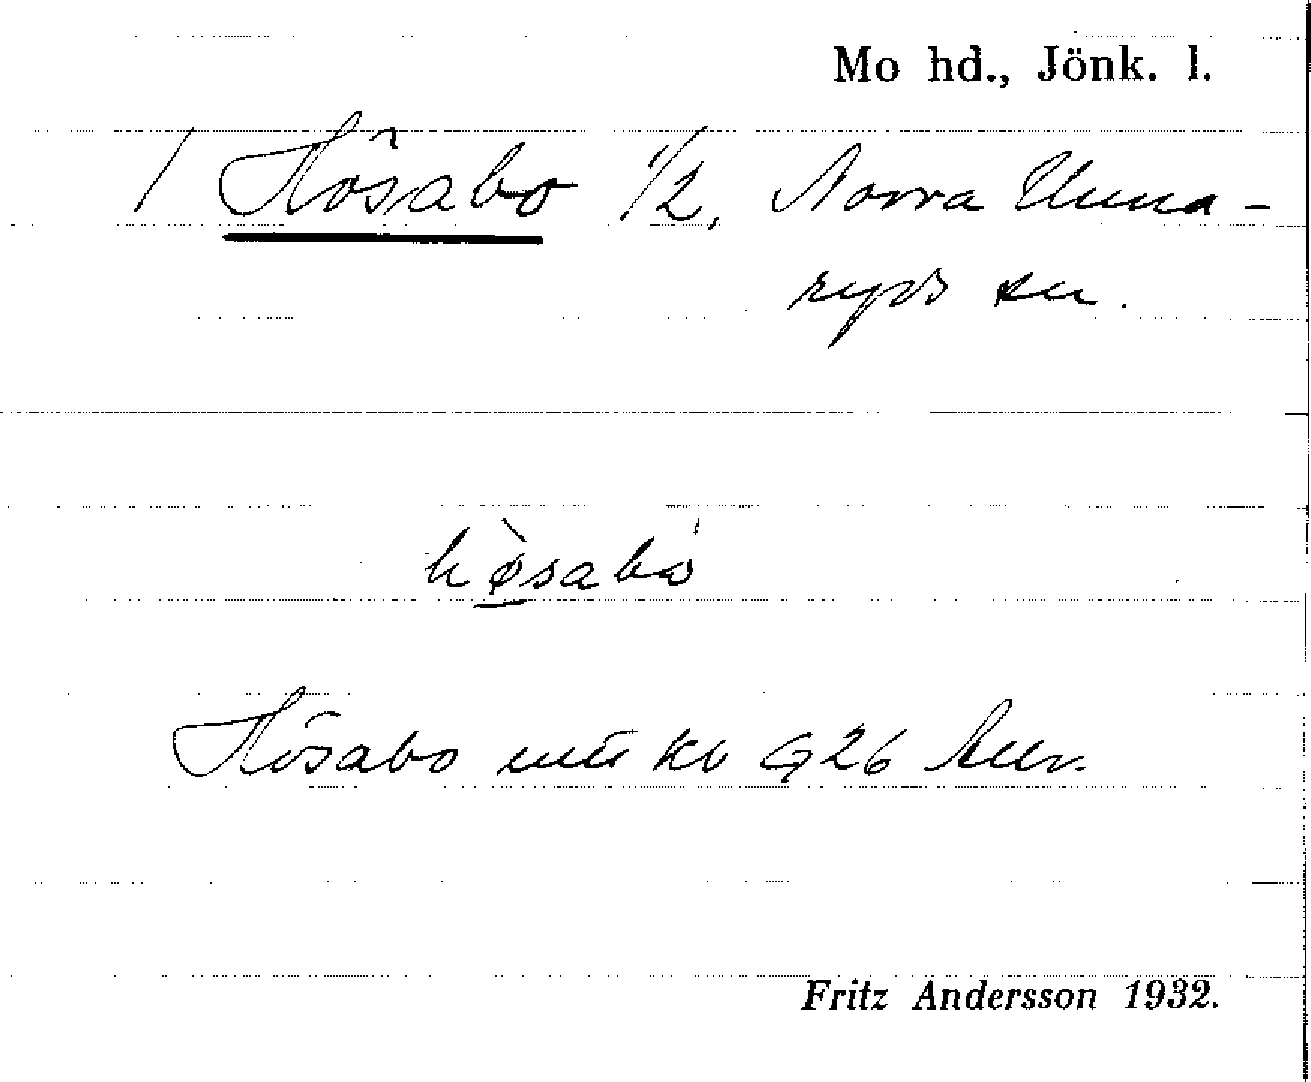 Mo hd., Jönk. l.
/ Hösabo 1/2, Norra Unna-
ryds sn.
hø̀sabo
Hösabo utis kv G26 Aur.
Fritz Andersson 1932.